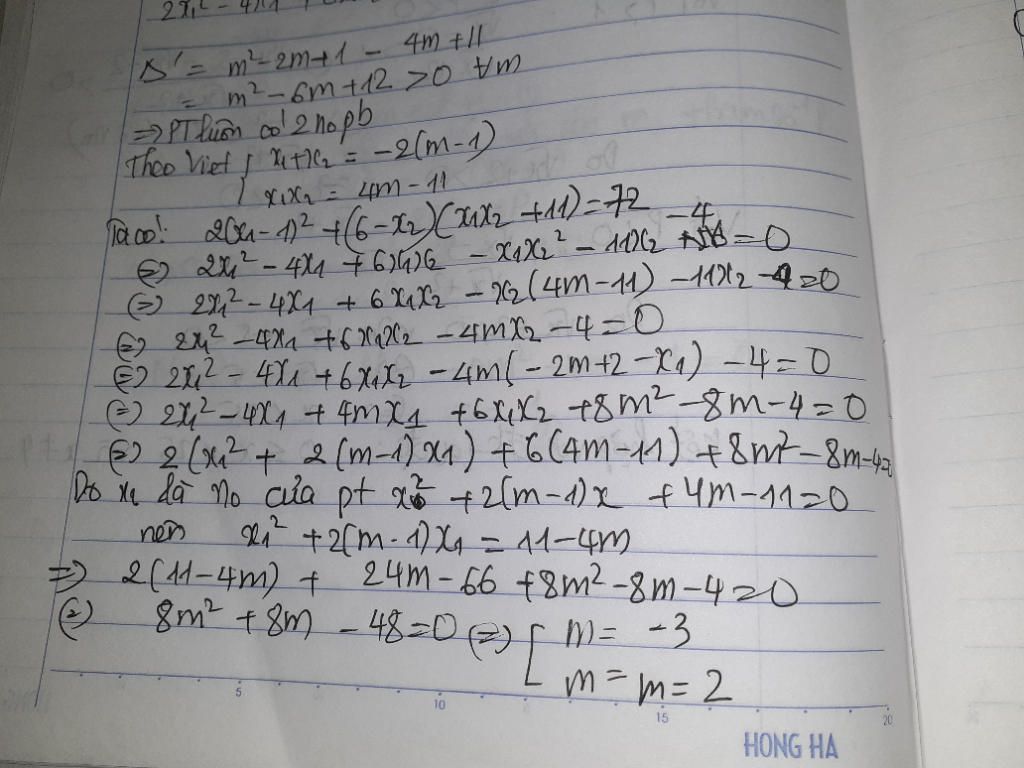 2x₁² - 4x₁ +
Δ' = m² - 2m + 1 - 4m + 11
= m² - 6m + 12 > 0 ∀m
⇒ PT luôn có 2 no pb
Theo Viet { x₁ + x₂ = -2(m-1)
x₁x₂ = 4m - 11
Ta có: 2(x₁-1)² + (6-x₂)(x₁x₂ + 11) = 72
⇔ 2x₁² - 4x₁ + 6x₁x₂ - x₁x₂² - 11x₂ - 4 = 0
⇔ 2x₁² - 4x₁ + 6x₁x₂ - x₂(4m-11) - 11x₂ - 4 = 0
⇔ 2x₁² - 4x₁ + 6x₁x₂ - 4mx₂ - 4 = 0
⇔ 2x₁² - 4x₁ + 6x₁x₂ - 4m(-2m+2-x₁) - 4 = 0
⇔ 2x₁² - 4x₁ + 4mx₁ + 6x₁x₂ + 8m² - 8m - 4 = 0
⇔ 2(x₁² + 2(m-1)x₁) + 6(4m-11) + 8m² - 8m - 4 = 0
Do x₁ là no của pt x² + 2(m-1)x + 4m - 11 = 0
nên x₁² + 2(m-1)x₁ = 11 - 4m
⇒ 2(11-4m) + 24m - 66 + 8m² - 8m - 4 = 0
⇔ 8m² + 8m - 48 = 0 ⇔ [ m = -3
m = m = 2
5 10 15 20
HONG HA